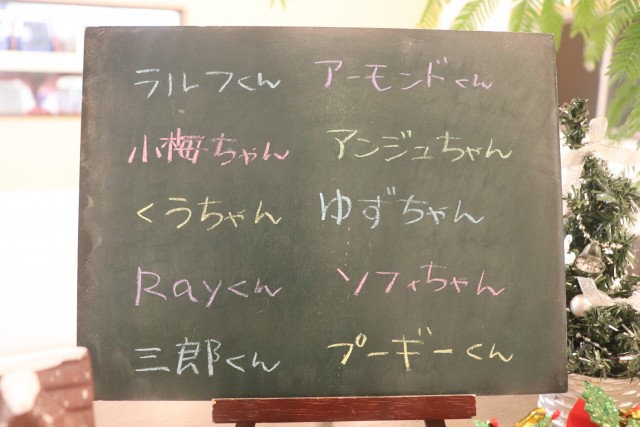 ラルフくん アーモンドくん
小梅ちゃん アンジュちゃん
くうちゃん ゆずちゃん
Rayくん ソフィちゃん
三郎くん プーギーくん